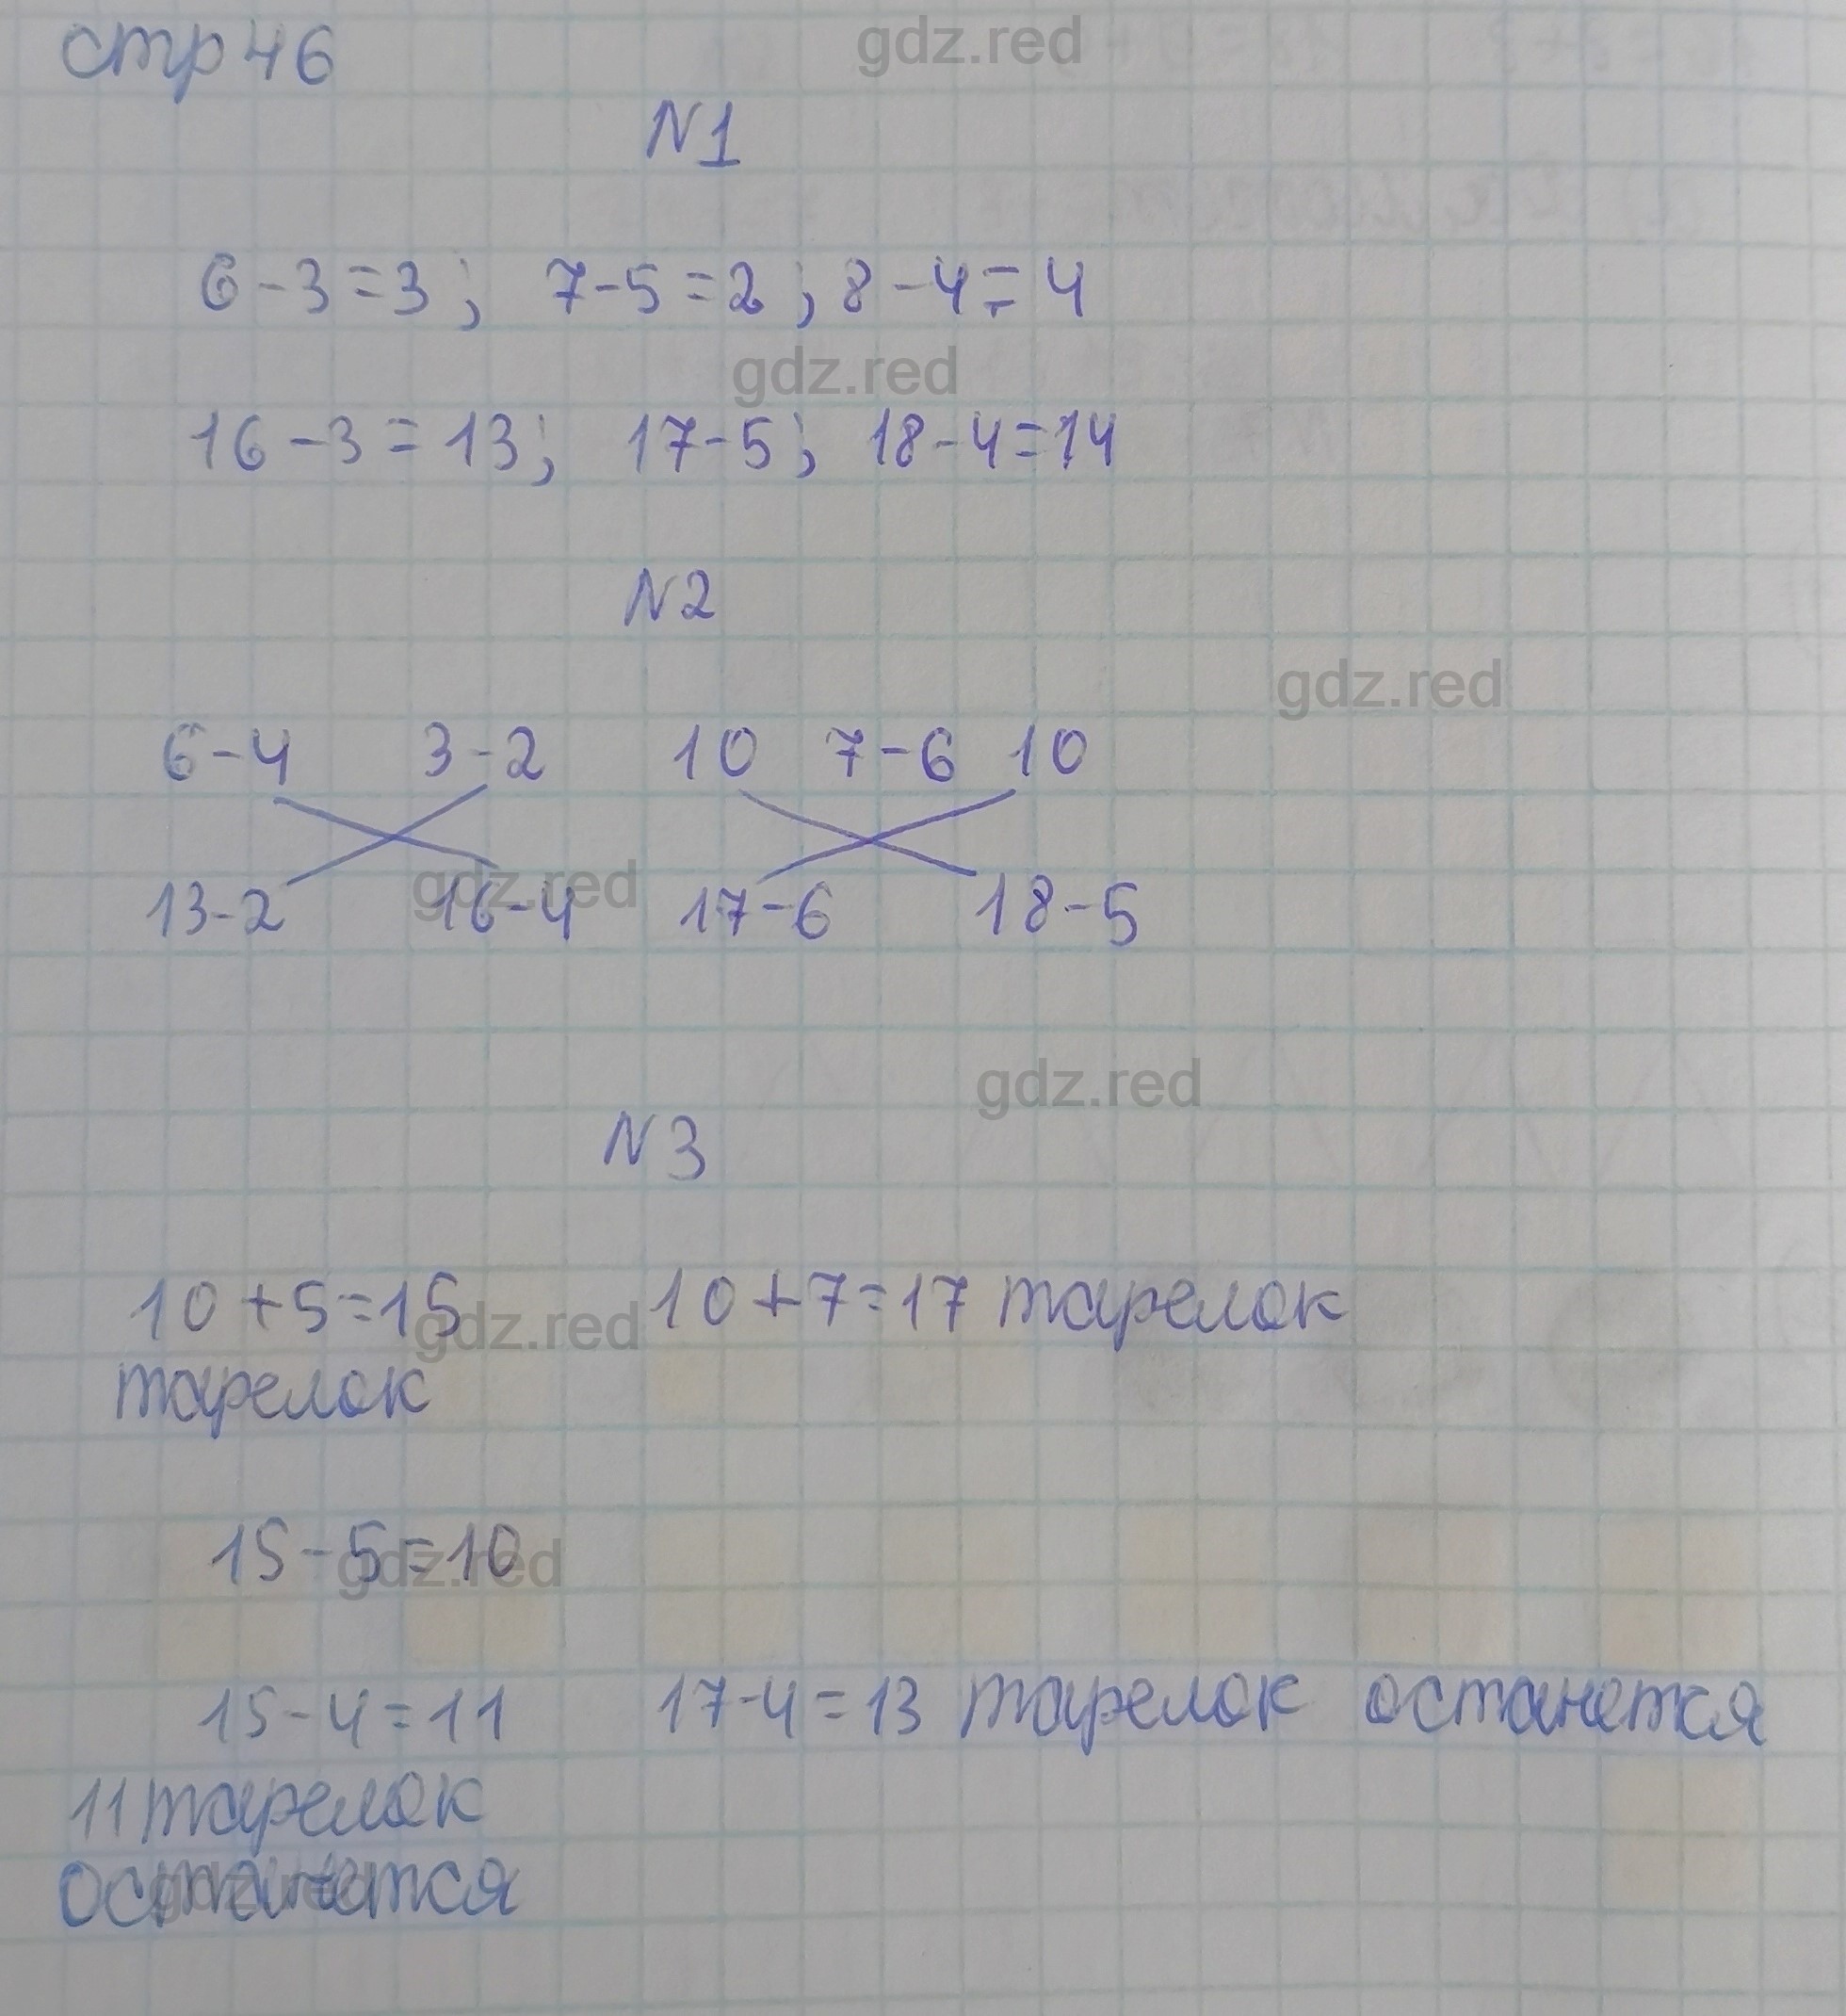 стр 46
gdz.red
N1
6-3=3; 7-5=2; 8-4=4
gdz.red
16-3=13; 17-5; 18-4=14
N2
gdz.red
6-4 3-2 10 7-6 10
gdz.red
13-2 16-4 17-6 18-5
gdz.red
N3
10+5=15 10+7=17 тарелок
gdz.red
тарелок
15-5=10
gdz.red
15-4=11 17-4=13 тарелок останется
11 тарелок
останется
gdz.red